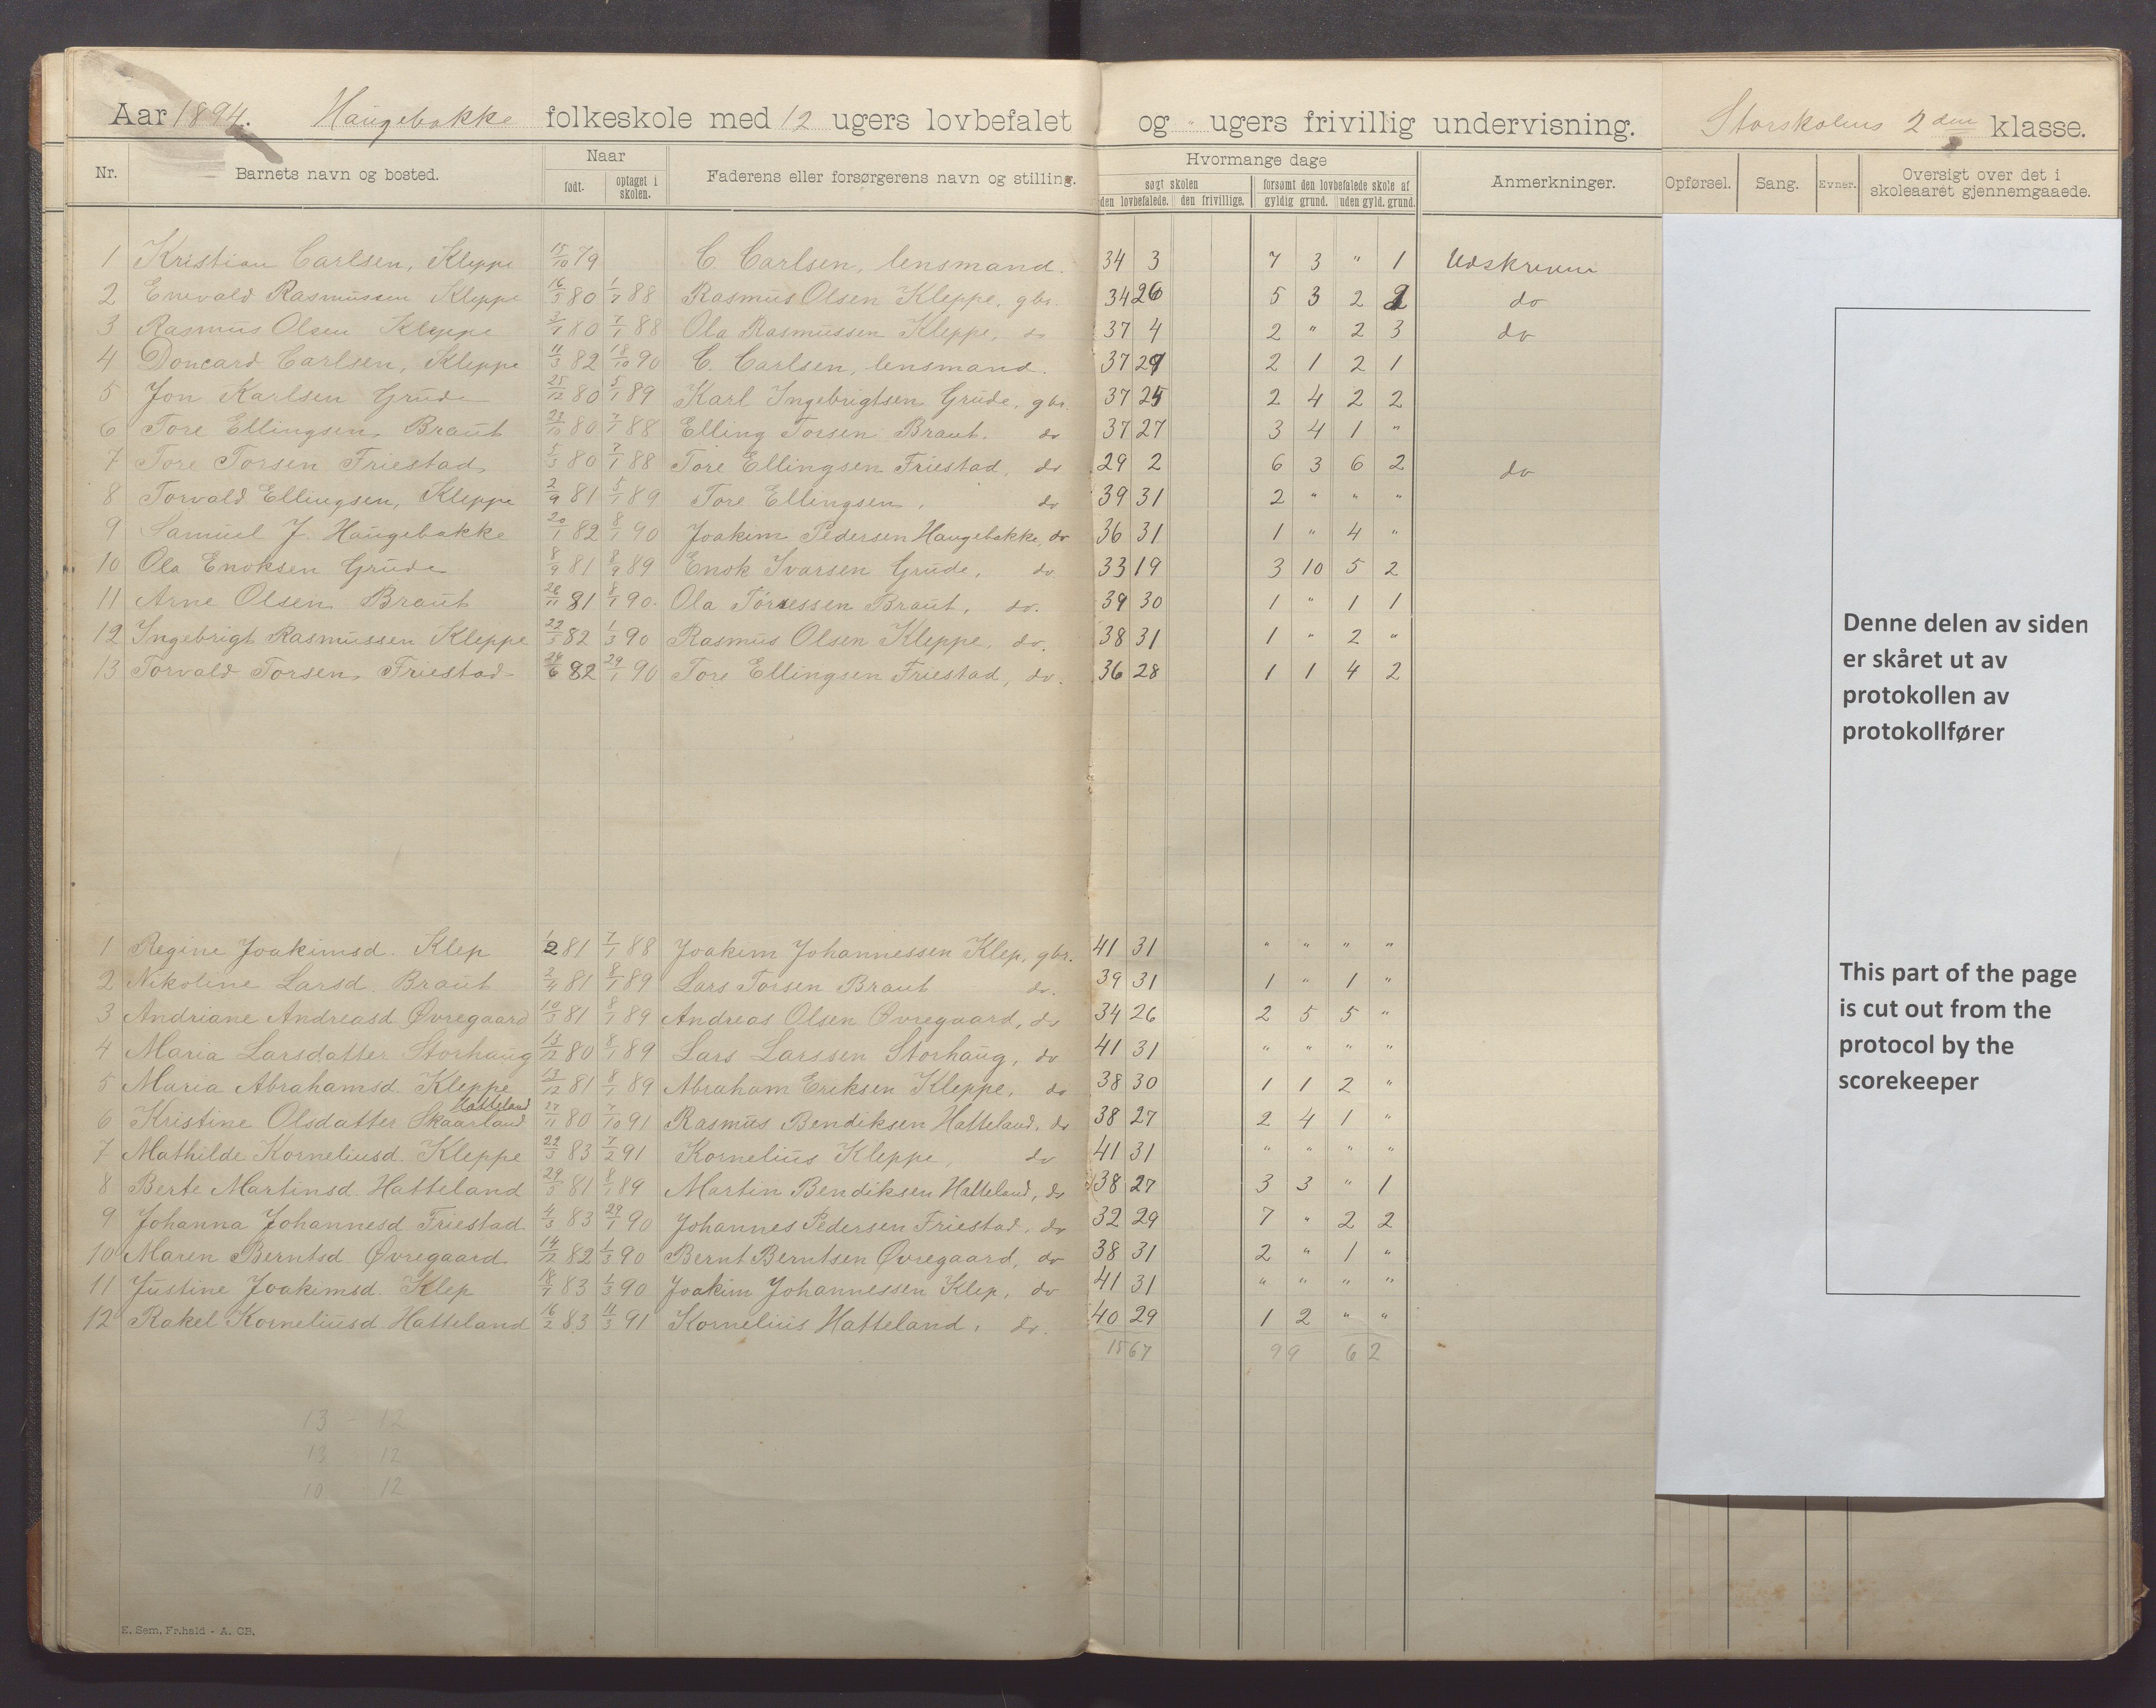 Aar 1894. Haugebakke folkeskole med 12 ugers lovbefalet og " ugers frivillig undervisning. Storskolens 2 den klasse.
Nr. Barnets navn og bosted. Naar født. optaget i skolen. Faderens eller forsørgerens navn og stilling. Hvormange dage søgt skolen den lovbefalede. den frivillige. forsømt den lovbefalede skole af gyldig grund. uden gyld. grund. Anmerkninger. Opførsel. Sang. Evner. Oversigt over det i skoleaaret gjennemgaaede.
1 Kristian Carlsen, Kleppe 15/10 79 C. Carlsen, lensmand. 34 3 7 3 " 1 Udskreven
2 Enevald Rasmussen Kleppe 16/3 80 1/7 88 Rasmus Olsen Kleppe, gbr. 34 26 5 3 2 2 do
3 Rasmus Olsen Kleppe 3/1 80 7/1 88 Ola Rasmussen Kleppe, do 37 4 2 " 2 3 do
4 Doncard Carlsen, Kleppe 11/3 82 18/10 90 C. Carlsen, lensmand. 37 29 2 1 2 1
5 Jon Karlsen Grude 25/12 80 5/1 89 Karl Ingebrigtsen Grude, gbr. 37 25 2 4 2 2
6 Tore Ellingsen Braut 23/10 80 7/1 88 Elling Torsen Braut. do 37 27 3 4 1 "
7 Tore Torsen Friestad 5/3 80 7/1 88 Tore Ellingsen Friestad, do 29 2 6 3 6 2 do
8 Torvald Ellingsen, Kleppe 2/9 81 5/1 89 Tore Ellingsen, do 39 31 2 " " "
9 Samuel J. Haugebakke 20/1 82 8/1 90 Joakim Pedersen Haugebakke, do 36 31 1 " 4 "
10 Ola Enoksen Grude 8/9 81 8/9 89 Enok Ivarsen Grude, do 33 19 3 10 5 2
11 Arne Olsen Braut 28/11 81 8/1 90. Ola Tørressen Braut, do. 39 30 1 " 1 1
12 Ingebrigt Rasmussen Kleppe 22/3 82 1/3 90 Rasmus Olsen Kleppe, do. 38 31 1 " 2 "
13 Torvald Torsen Friestad 24/6 82 29/1 90 Tore Ellingsen Friestad, do. 36 28 1 1 4 2
1 Regine Joakimsd. Klep 1/2 81 7/1 88 Joakim Johannessen Klep, gbr. 41 31 " " " "
2 Nikoline Larsd. Braut 2/4 81 8/1 89 Lars Torsen Braut do. 39 31 1 " 1 "
3 Andriane Andreasd Øvregaard 10/3 81 8/1 89 Andreas Olsen Øvregaard, do 34 26 2 5 5 "
4 Maria Larsdatter Storhaug 13/12 80 8/1 89 Lars Larssen Storhaug, do 41 31 " " " "
5 Maria Abrahamsd. Kleppe 13/12 81 8/1 89 Abraham Eriksen Kleppe, do 38 30 1 1 2 "
Hatteland
6 Kristine Olsdatter Skaarland 27/11 80 7/10 91 Rasmus Bendiksen Hatteland, do 38 27 2 4 1 "
7 Mathilde Korneliusd. Kleppe 22/3 83 7/2 91 Kornelius Kleppe, do 41 31 " " " "
8 Berte Martinsd. Hatteland 29/3 81 8/1 89 Martin Bendiksen Hatteland, do 38 27 3 3 " 1
9 Johanna Johannesd. Friestad 4/3 83 29/1 90 Johannes Pedersen Friestad, do 32 29 7 " 2 2
10 Maren Berntsd Øvregaard 14/12 82 1/3 90 Bernt Berntsen Øvregaard, do 38 31 2 " 1 "
11 Justine Joakimsd. Klep 18/7 83 1/3 90 Joakim Johannessen Klep, do 41 31 " " " "
12 Rakel Korneliusd Hatteland 16/2 83 11/3 91 Kornelius Hatteland, do. 40 29 1 2 " "
1567 99 62
13 - 12
13 12
10 - 12
E. Sem, Fr.hald - A. OB.
Denne delen av siden
er skåret ut av
protokollen av
protokollfører
This part of the page
is cut out from the
protocol by the
scorekeeper